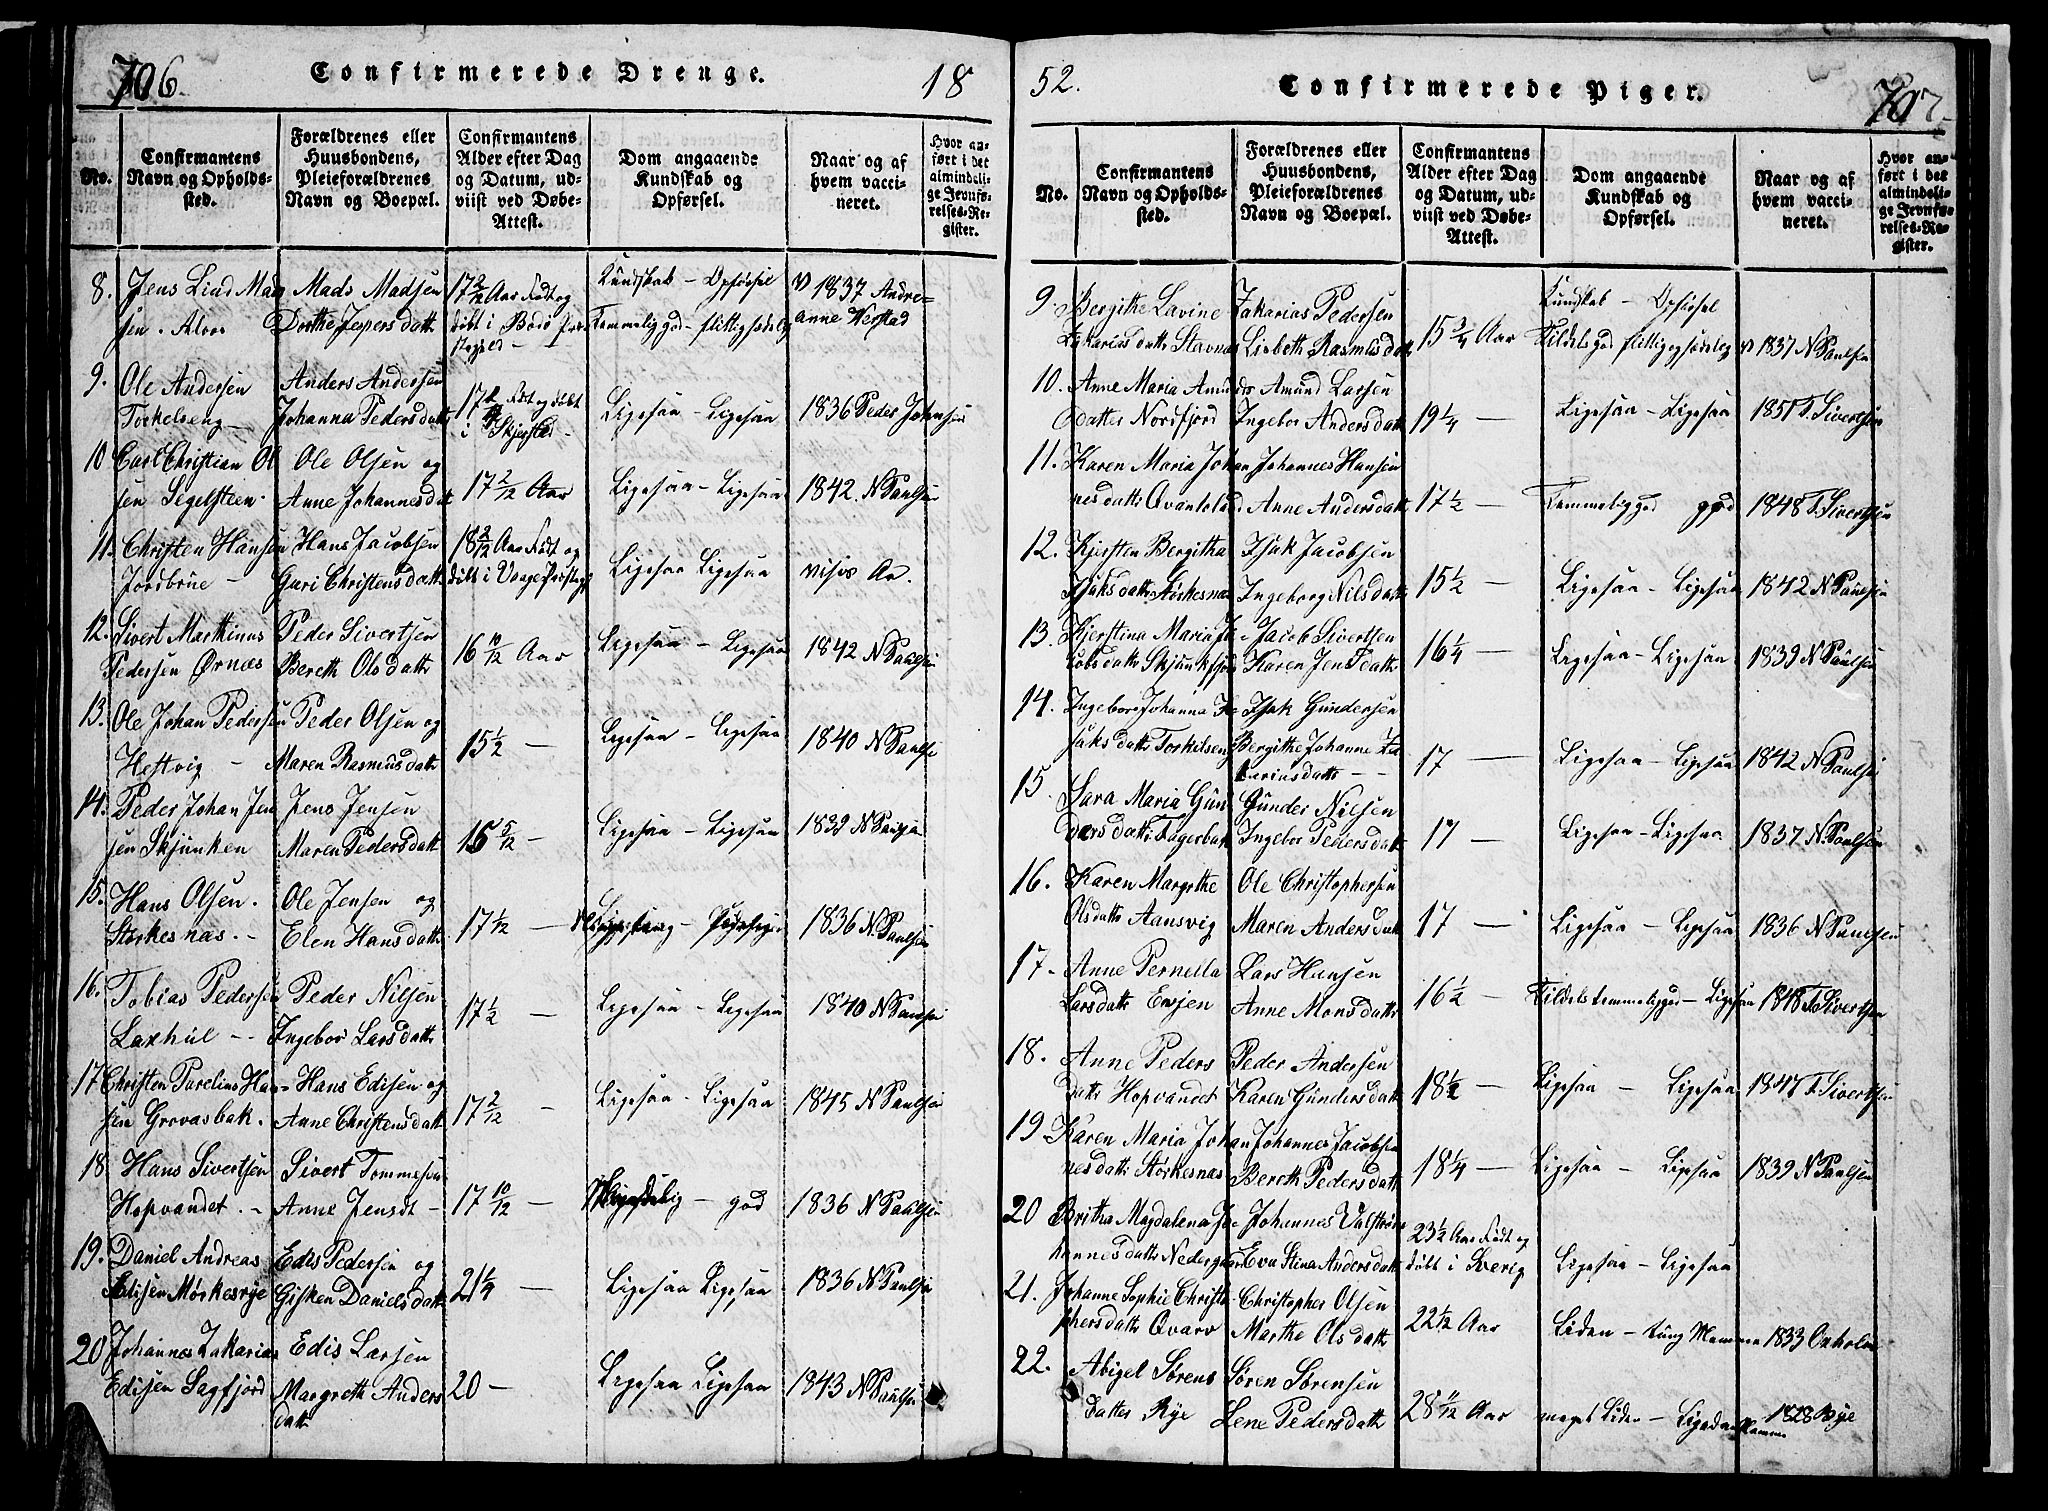 706.
Confirmerede Drenge.
18
No.
Confirmantens Navn og Opholdssted.
Forældrenes eller Huusbondens, Pleieforældrenes Navn og Boepæl.
Confirmantens Alder efter Dag og Datum, udviist ved Døbe-Attest.
Dom angaaende Kundskab og Opførsel.
Naar og af hvem vaccineret.
Hvor anført i det almindelige Jevnførelses-Register.
8. Jens Lind Mad Mads Madsen 17 2/12 Aar Født og Kundskab - Opførsel v 1837 Andre=
sen. Alvor Dorthe Jespersdatt døbt i Bodø Præ Temmelig god - flittig sædelig anne Wistad
stegjeld -
9. Ole Andersen Anders Andersen Født og døbt
Torkelseng Johanna Pedersdatt i Skjerstad Ligesaa - Ligesaa 1836 Peder Johnsen
10 Carl Christian Ol Ole Olsen og
sen Segelsteen. Anne Johannesdat 17 2/12 Aar Ligesaa - Ligesaa 1842. N Paulsen
11. Christen Hansen Hans Jacobsen 18 2/12 Aar Født og
Jordbrue - Guri Christensdatt døbt i Ligesaa Ligesaa
12. Sivert Marthinus Peder Sivertsen
Pedersen Ørnæs Bereth Olsdatt 16 10/12 Aar Ligesaa - Ligesaa 1842 N Paulsen
13. Ole Johan Pedersen Peder Olsen og
Hestvig - Maren Rasmusdatt 15 1/2 - Ligesaa - Ligesaa 1840 N Paulse
14. Peder Johan Jen Jens Jensen
sen Skjunken Maren Pedersdatt 5/12 - Ligesaa - Ligesaa 1839 N Paulse
15. Hans Olsen. Ole Jensen og
Størkesnas. - Elen Hansdatt 17 1/2 - 1836 N Paulsen
16. Tobias Pedersen Peder Nilsen
Laxhul - - Ingebor Larsdatt 17 1/2 - Ligesaa - Ligesaa 1840 N Paulsen
17 Christen Parelius Han= Hans Edisen og
sen Grovasbak. Anne Christensdatt 17 2/12 - Ligesaa - Ligesaa 1845 N Paulsen
18. Hans Sivertsen Sivert Tommesen
Hopvandet. - Anne Jensdt - 17 10/12 - god 1836 N Paulsen
19. Daniel Andreas Edis Pedersen og
Edisen Mørkesrye Gisken Danielsdatt 21 1/4 - Ligesaa Ligesaa 1836 N Paulse
20 Johannes Zakarias Edis Larsen
Edisen Sagfjord Margreth Anders 20 - Ligesaa Ligesaa 1843 N Paulsen
datt
52.
Confirmerede Piger.
707.
No.
Confirmantens Navn og Opholdssted.
Forældrenes eller Huusbondens, Pleieforældrenes Navn og Boepæl.
Confirmantens Alder efter Dag og Datum, udviist ved Døbe-Attest.
Dom angaaende Kundskab og Opførsel.
Naar og af hvem vaccineret.
Hvor anført i det almindelige Jevnførelses-Register.
9. Bergithe Lavine Zakarias Pedersen Kundskab - Opførsel
Zakariasdatt Stavnæs Lisbeth Rasmusdatt 15 3/4 Aar Tildels god flittig og sædelig v 1837 N Paulsen
10. Anne Maria Amunds Amund Larsen
datter Nordfjord Ingebor Andersdatt 19 1/4 - Ligesaa - Ligesaa 1851 T. Sivertsen
11. Karen Maria Johan Johannes Hansen
nesdatt Qvanloland Anne Andersdatt 17 1/2 - Temmelig god god 1848 T. Sivertsen
12. Kjersten Bergitha Isak Jacobsen
Isaksdatt Størkesnas Ingeborg Nilsdatt 15 1/2 - Ligesaa - Ligesaa 1842 N Paulsen
13. Kjerstina Maria Ja= Jacob Sivertsen
cobsdatt Skjunkfjord Karen Jensdatt 16 1/4 - Ligesaa - Ligesaa 1839 N Paulsen
14. Ingebor Johanna Isak Gundersen
saksdatt Torkilseng Bergithe Johanne Za 17 - Ligesaa - Ligesaa 1842 N Paulsen
kariasdatt - -
15. Sara Maria Gun Gunder Nilsen
dersdatt Fagerbak Ingebor Pedersdatt 17 - Ligesaa - Ligesaa 1837 N. Paulsen
16. Karen Margrethe Ole Christophersen
Olsdatt Aansvig Maren Andersdatt 17 - Ligesaa - Ligesaa 1836 N Paulsen
17. Anne Pernella Lars Hansen
Larsdatt Enjen Anne Monsdatt 16 1/2 - Tildels temmelig god - Ligesaa 1848 T. Sivertsen
18. Anne Peders Peder Andersen
datt Hopvandet Karen Gundersdatt 18 1/2 - Ligesaa - Ligesaa 1847 T. Sivertsen
19 Karen Maria Johan Johannes Jacobsen
nesdatt Størkesnas Bereth Pedersdatt 18 1/4 - Ligesaa - Ligesaa 1839 N Paulsen
20 Britha Magdalena Jo= Johannes Valstrøm 23 1/2 Aar Født og
hannesdatt Nedergaar Eva Stina Andersdatt døbt i Sverig Ligesaa - Ligesaa
21. Johanne Sophie Christo= Christopher Olsen
phersdatt Qvarv Marthe Olsdatt 22 1/2 Aar Liden - tung Nemme 1833 Oxholm
22. Abigel Sørens Søren Sørensen
datter Rye Lene Pedersdatt 28 11/12 Aar meget Liden - 1828 Rye